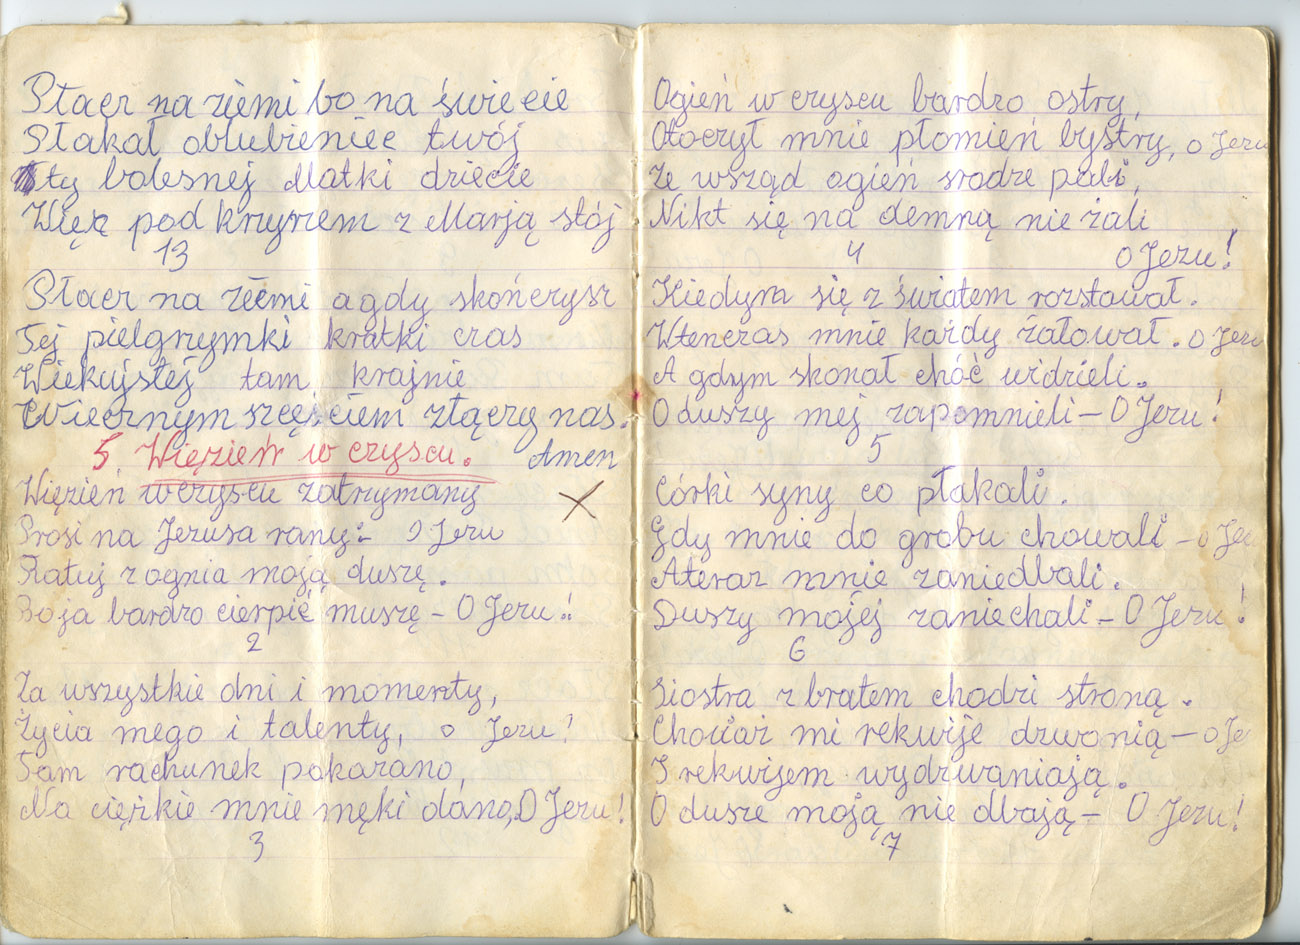 Płacz na ziemi bo na świecie
Płakał oblubieniec twój
ty bolesnej Matki dziecie
Więc pod krzyżem z Marją stój
13
Płacz na ziemi a gdy skończysz
Tej pielgrzymki krótki czas
Wiekujstej tam krajnie
Wiecznym szczęściem złączy nas.
Amen
5 Więzień w czyscu.
Więzień w czyscu zatrzymany
Prosi na Jezusa rany:- O Jezu
Ratuj z ognia moją duszę.
Bo ja bardzo cierpić muszę – O Jezu!
2
Za wszystkie dni i momenty,
Życia mego i talenty, o Jezu!
Tam rachunek pokazano,
Na ciężkie mnie męki dano, O Jezu!
3
Ogień w czyscu bardzo ostry,
Otoczył mnie płomień bystry, o Jezu
Ze wsząd ogień srodze pali,
Nikt się na demną nie żali
o Jezu!
4
Kiedym się z światem rozstawał.
Wtenczas mnie każdy żałował. o Jezu
A gdym skonał chóć widzieli.
O duszy mej zapomnieli – O Jezu!
5
Córki syny co płakali.
Gdy mnie do grobu chowali – o Je
Ateraz mnie zaniedbali.
Duszy mojéj zaniechali – O Jezu!
6
Siostra z bratem chodzi stroną.
Chociaż mi rekwije dzwonią – o Je
I rekwijem wydzwaniają.
O dusze moją nie dbają – O Jezu!
7